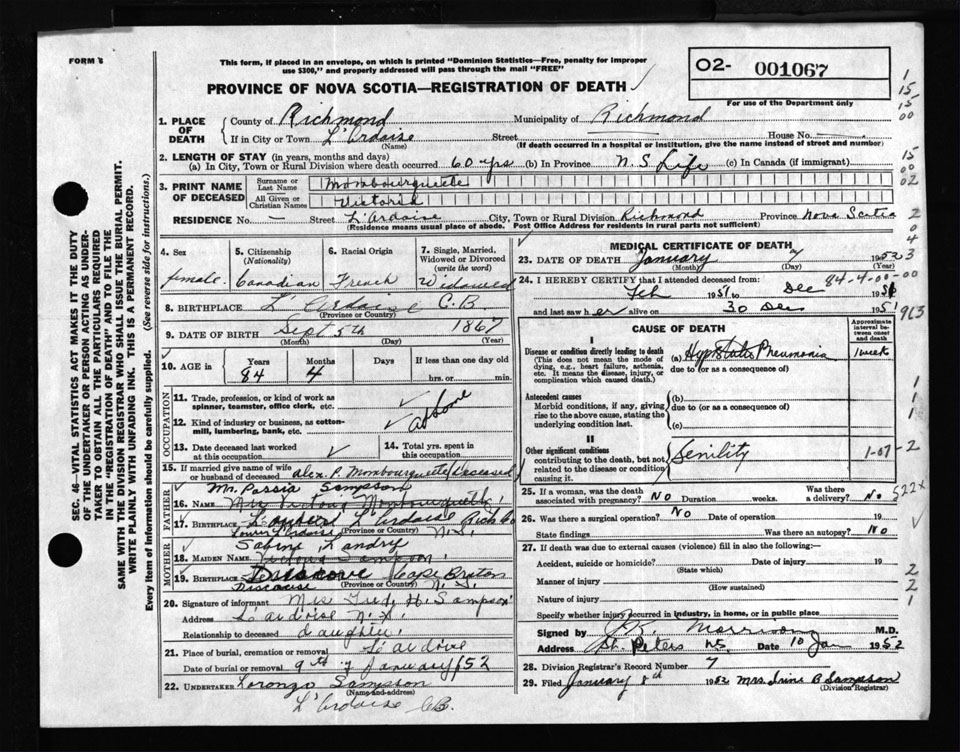 FORM
This form, if placed in an envelope, on which is printed "Dominion Statistics—Free, penalty for improper
use $300," and properly addressed will pass through the mail "FREE"
O2- 001067
For use of the Department only
PROVINCE OF NOVA SCOTIA—REGISTRATION OF DEATH
1. PLACE OF DEATH
County of Richmond Municipality of Richmond
If in City or Town L'Ardoise Street House No.
(Name) (If death occurred in a hospital or institution, give the name instead of street and number)
2. LENGTH OF STAY (in years, months and days)
(a) In City, Town or Rural Division where death occurred 60 yrs (b) In Province N.S. Life (c) In Canada (if immigrant)
3. PRINT NAME OF DECEASED
Surname or Last Name Mombourquette
All Given or Christian Names Victoria
RESIDENCE No. — Street L'Ardoise City, Town or Rural Division Richmond Province Nova Scotia
(Residence means usual place of abode. Post Office Address for residents in rural parts not sufficient)
4. Sex
female
5. Citizenship
(Nationality)
Canadian
6. Racial Origin
French
7. Single, Married,
Widowed or Divorced
(write the word)
Widowed
8. BIRTHPLACE L'Ardoise C.B.
(Province or Country)
9. DATE OF BIRTH Sept 5th 1867
(Month) (Day) (Year)
10. AGE in
Years 84
Months 4
Days
If less than one day old
hrs. or min.
OCCUPATION
11. Trade, profession, or kind of work as
spinner, teamster, office clerk, etc.
12. Kind of industry or business, as cotton-
mill, lumbering, bank, etc.
above
13. Date deceased last worked
at this occupation
14. Total yrs. spent in
this occupation
15. If married give name of wife
or husband of deceased Alex. P. Mombourquette Deceased
FATHER
Mr. Sampson
16. NAME
17. BIRTHPLACE L'Ardoise Rich Co
Lower L'Ardoise (Province or Country) N.S.
MOTHER
Sabine Landry
18. MAIDEN NAME Sampson
19. BIRTHPLACE Cape Breton
(Province or Country) N.S.
20. Signature of informant H. Sampson
Address L'Ardoise N.S.
Relationship to deceased daughter
21. Place of burial, cremation or removal L'Ardoise
Date of burial or removal 9th of January/52
22. UNDERTAKER Lorenzo Sampson
(Name and address)
L'Ardoise CB.
MEDICAL CERTIFICATE OF DEATH
23. DATE OF DEATH January 7 1952
(Month) (Day) (Year)
24. I HEREBY CERTIFY that I attended deceased from: 84-4-
Feb 1951 to Dec 1951
and last saw her alive on 30 Dec 1951
CAUSE OF DEATH
Approximate
interval be-
tween onset
and death
I
Disease or condition directly leading to death
(This does not mean the mode of
dying, e.g., heart failure, asthenia,
etc. It means the disease, injury, or
complication which caused death.)
(a) Hypostatic Pneumonia 1 week
due to (or as a consequence of)
Antecedent causes
Morbid conditions, if any, giving
rise to the above cause, stating the
underlying condition last.
(b)
due to (or as a consequence of)
(c)
II
Other significant conditions
contributing to the death, but not
related to the disease or condition
causing it.
Senility
25. If a woman, was the death
associated with pregnancy? No Duration weeks. Was there
a delivery? No
26. Was there a surgical operation? No Date of operation 19
State findings Was there an autopsy? No
27. If death was due to external causes (violence) fill in also the following:—
Accident, suicide or homicide? Date of injury 19
(State which)
Manner of injury
(How sustained)
Nature of injury
Specify whether injury occurred in industry, in home, or in public place
Signed by Morrison M.D.
Address St. Peters NS. Date 10 Jan 1952
28. Division Registrar's Record Number 7
29. Filed January 8th 1952 Mrs. Irine B Sampson
(Division Registrar)
SEC. 46—VITAL STATISTICS ACT MAKES IT THE DUTY
OF THE UNDERTAKER OR PERSON ACTING AS UNDER-
TAKER TO OBTAIN ALL THE PARTICULARS REQUIRED
IN THE "REGISTRATION OF DEATH" AND TO FILE THE
SAME WITH THE DIVISION REGISTRAR WHO SHALL ISSUE THE BURIAL PERMIT.
WRITE PLAINLY WITH UNFADING INK. THIS IS A PERMANENT RECORD.
Every item of information should be carefully supplied. (See reverse side for instructions.)